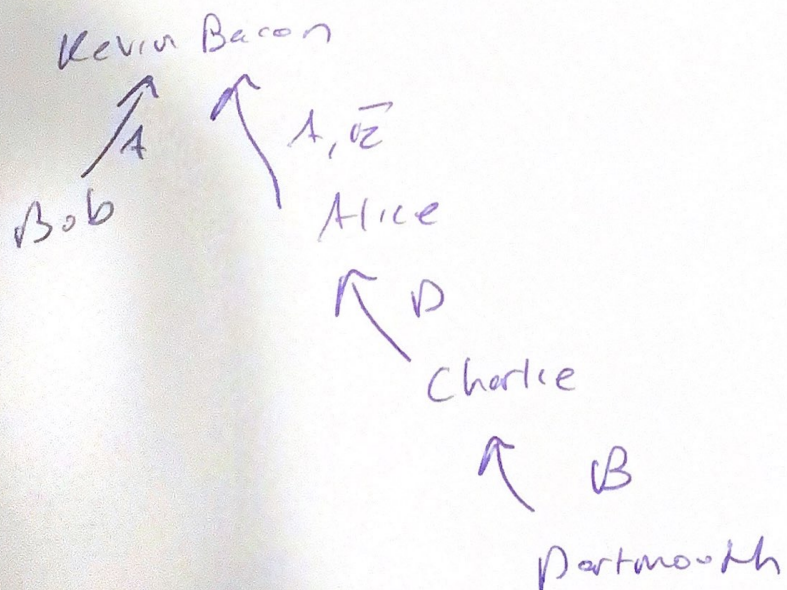 Kevin Bacon
A
A, E
Bob
Alice
D
Charlie
B
Dartmouth